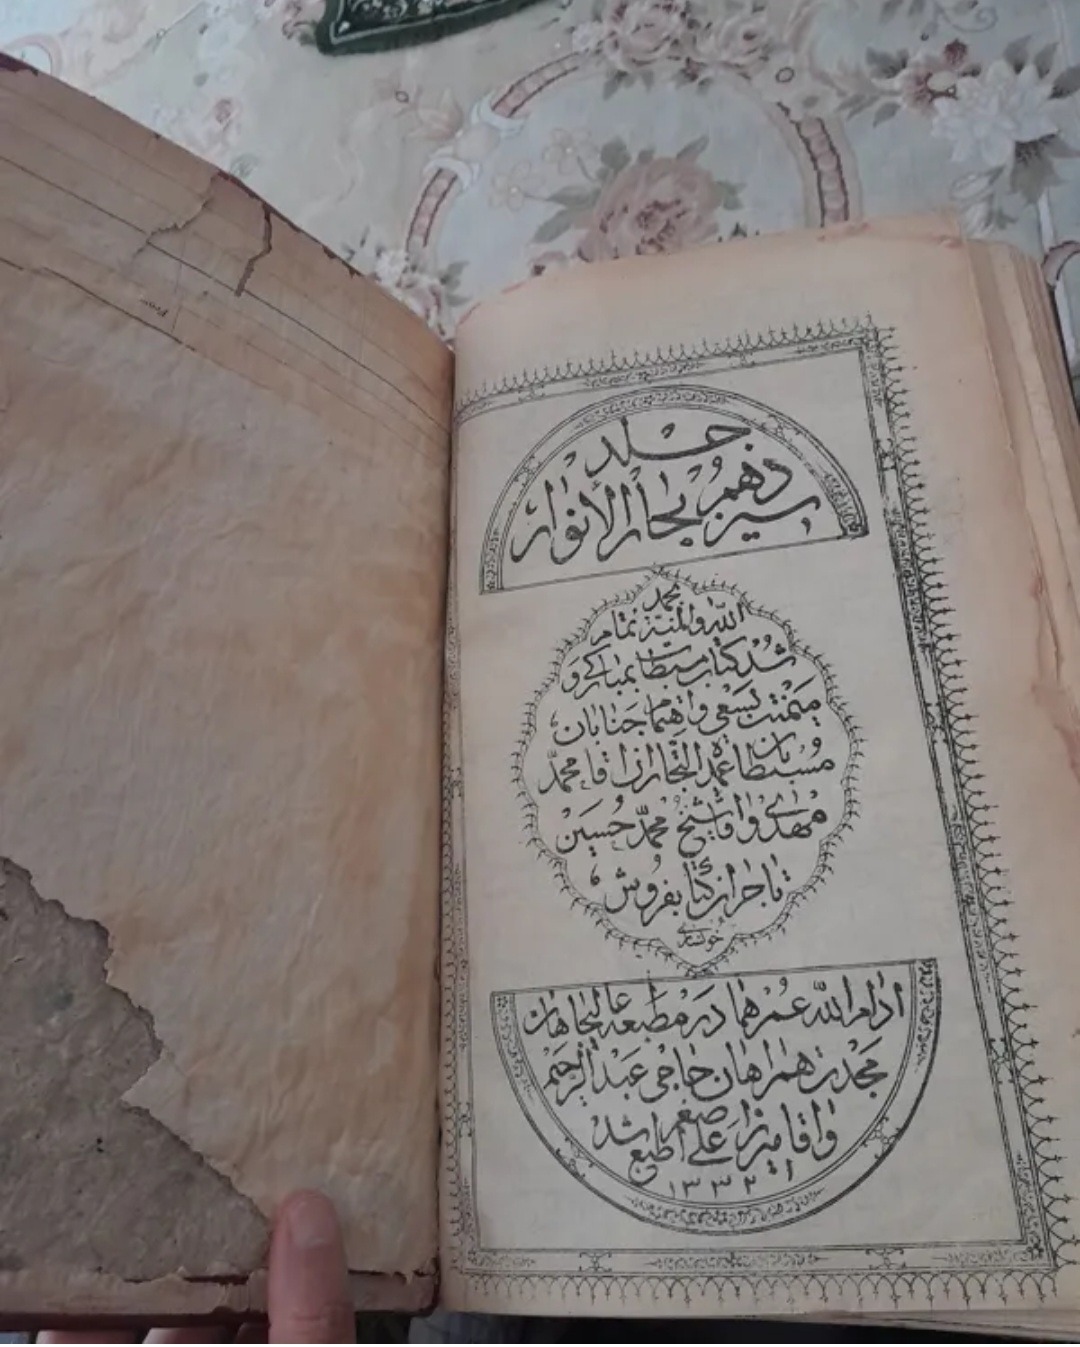 جلد
سیزدهم بحار الأنوار
محمد
الله والمنة تمام
شد کتاب مستطاب مبارکه و
میمنت بسعی و اهتمام جنابان
مستطابان عمدة التجاران آقا محمد
مهدی و آقا شیخ محمد حسین
تاجران کتابفروش
خونساری
ادام الله عمرهما در مطبعه عالیجاهان
مجدت همراهان حاجی عبد الرحیم
و آقا میرزا علی اصغر طبع شد
۱۳۳۲